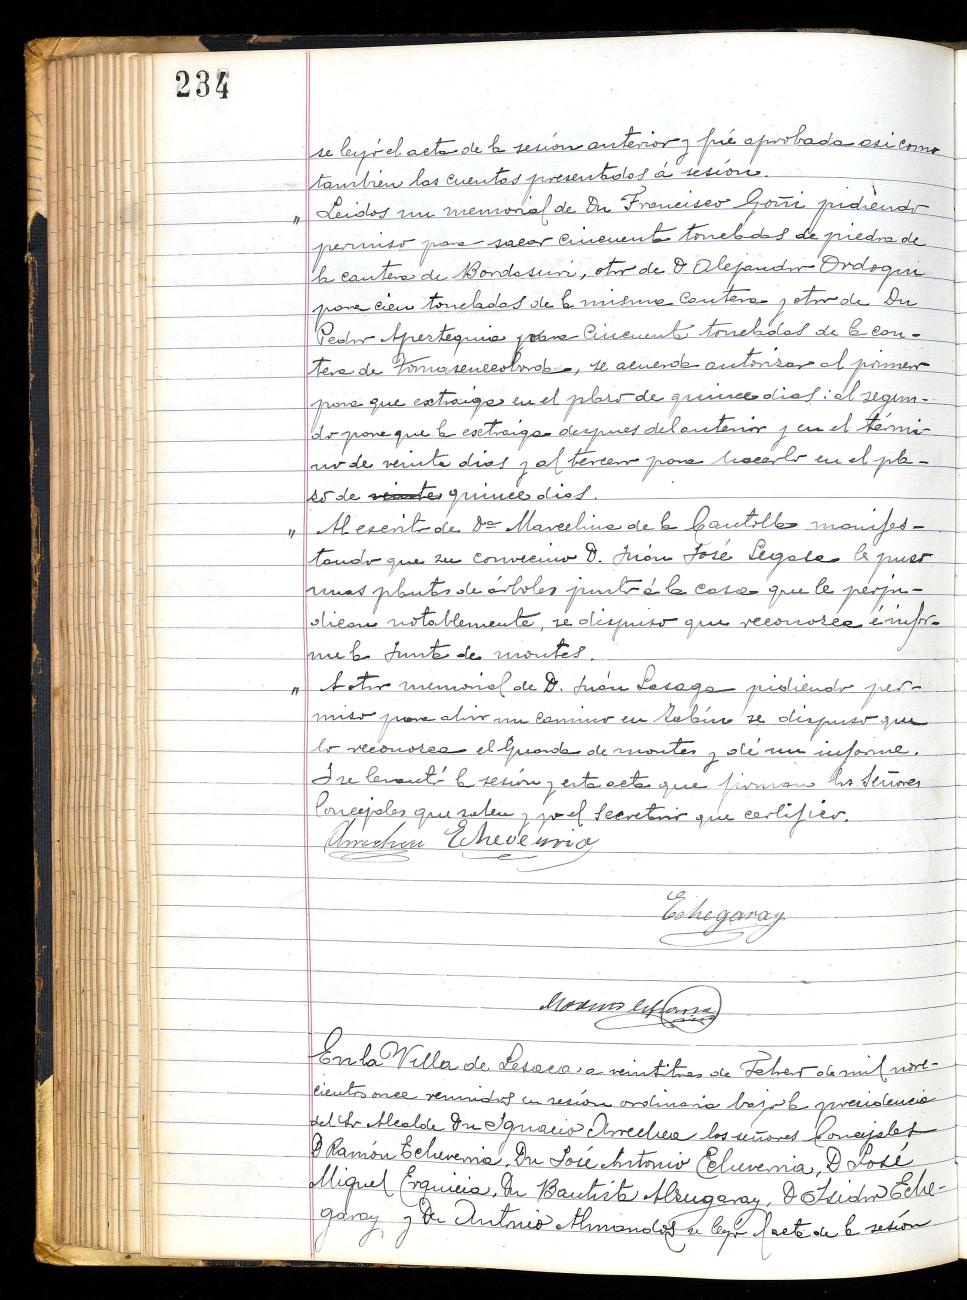 234
se leyó el acta de la sesión anterior y fué aprobada asi como
tambien las cuentas presentadas á sesión.
" Leidos un memorial de Dn Francisco Goñi pidiendo
permiso para sacar cincuenta toneladas de piedra de
la cantera de Bordasuri, otro de D Alejandro Ordoqui
para cien toneladas de la misma cantera y otro de Dn
Pedro Apezteguia para cincuenta toneladas de la can-
tera de, se acuerda autorizar al primero
para que extraiga en el plazo de quince dias: al segun-
do para que la extraiga despues del anterior y en el térmi-
no de veinte dias y al tercero para hacerlo en el pla-
zo de veinte quince dias.
" Al escrito de Da Marcelina de la Cantolla manifes-
tando que su convecino D. Juán José Leyza le puso
unas plantas de árboles junto á la casa que le perju-
dican notablemente, se dispuso que reconozca é infor-
me la Junta de montes.
" A otro memorial de D. Juán Lasaga pidiendo per-
miso para abrir un camino en se dispuso que
lo reconozca el Guarda de montes y dé un informe.
I se levantó la sesión y esta acta que firman los Señores
Concejales que saben y yo el Secretario que certifico.
Arrechea Echeverria
Echegaray
En la Villa de Lesaca a veintitres de Febrero de mil nove-
cientos once reunidos en sesión ordinaria bajo la presidencia
del Sr Alcalde Dn Ignacio Arrechea los señores Concejales
D Ramón Echeverria, Dn José Antonio Echeverria, D José
Miguel Erquicia, Dn Bautista Alzugaray, D Isidro Eche-
garay y Dn Antonio Almandoz se leyó el acta de la sesión